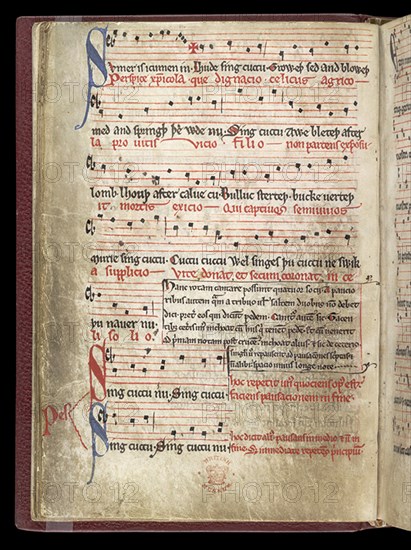 Sumer is icumen in. Lhude sing cuccu. Groweþ sed and bloweþ
Perspice xp̄icola que dignacio celicus agrico
med and springþ þe wde nu. Sing cuccu Awe bleteþ after
la pro uitis uicio filio non parcens exposu
lomb. lhouþ after calue cu. Bulluc sterteþ. bucke uerteþ
it mortis exicio Qui captiuos semiuiuos
murie sing cuccu. Cuccu cuccu Wel singes þu cuccu ne swik
a supplicio Vite donat et secum coronat in ce
þu nauer nu.
li solio.
Hanc rotam cantare possunt quatuor socii. A pauci
oribus autem quam a tribus uel saltem duobus non debet
dici preter eos qui dicunt pedem. Canitur autem sic. Tacen
tibus ceteris unus inchoat cum hiis qui tenent pedem. Et cum uenerit
ad primam notam post crucem inchoat alius. et sic de ceteris.
singuli uero repausent ad pausaciones scriptas et
non alibi spacio unius longe note.
hoc repetit unus quociens opus est
Sing cuccu nu. Sing cuccu. faciens pausacionem in fine.
Pes
hoc dicit alius pausans in medio et non in
Sing cuccu. Sing cuccu nu. fine. Sed immediate repetens principium.
PHOTO 12